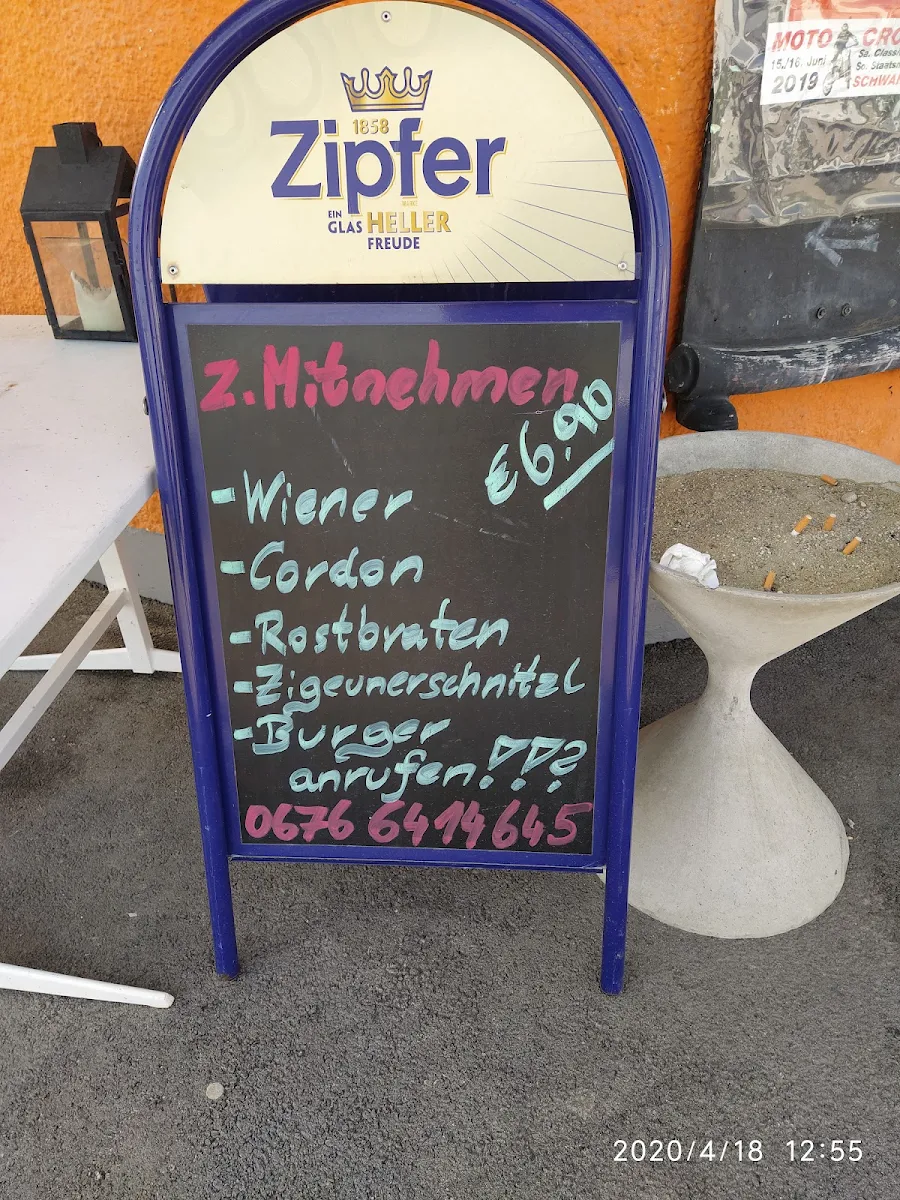 1858
Zipfer
EIN
GLAS HELLER
FREUDE
MOTO CRO
15./16. Juni
2019
Sa. Class
So. Staatsm
SCHWAN
z. Mitnehmen
€6.90
- Wiener
- Cordon
- Rostbraten
- Zigeunerschnitzl
- Burger
anrufen!!?
0676 6414645
2020/4/18 12:55